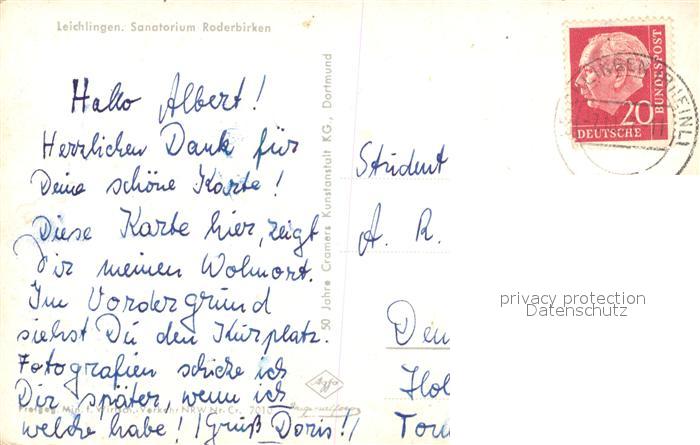 Leichlingen. Sanatorium Roderbirken
Hallo Albert!
Herzlichen Dank für
Deine schöne Karte!
Diese Karte hier, zeigt
Dir meinen Wohnort.
Im Vordergrund
siehst Du den Kurplatz.
Fotografien schicke ich
Dir später, wenn ich
welche habe! (Gruß Doris!)
Freigeg. Min. f. Wirtsch. Verkehr NRW Nr. Cr. 7010
50 Jahre Cramers Kunstanstalt KG., Dortmund
Agfa
Student
A. R.
20
DEUTSCHE
BUNDESPOST
(RHEINL)
privacy protection
Datenschutz